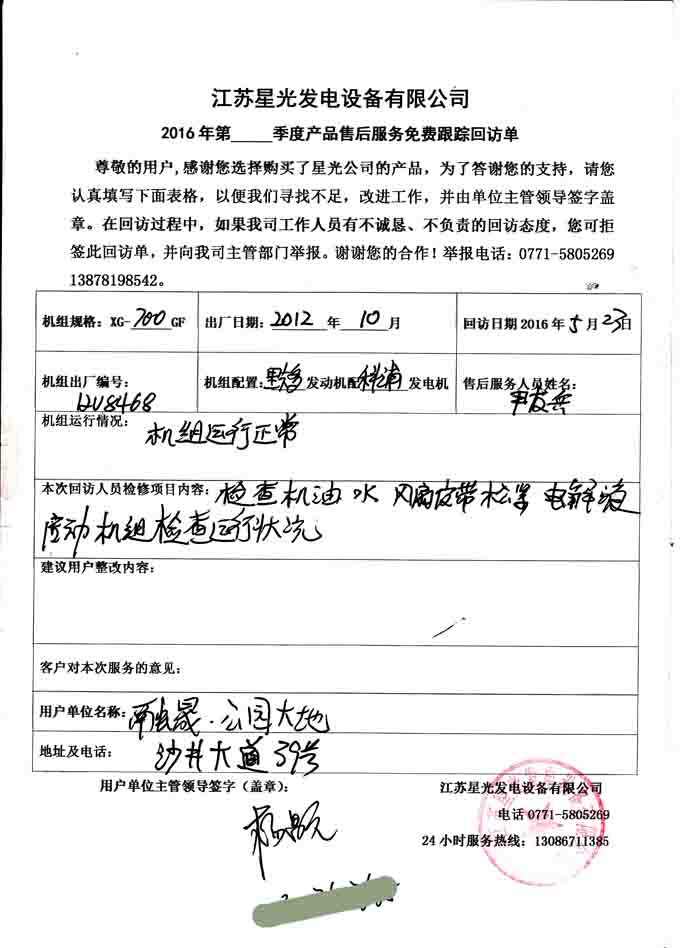 江苏星光发电设备有限公司
2016年第_____季度产品售后服务免费跟踪回访单
尊敬的用户,感谢您选择购买了星光公司的产品，为了答谢您的支持，请您
认真填写下面表格，以便我们寻找不足，改进工作，并由单位主管领导签字盖
章。在回访过程中，如果我司工作人员有不诚恳、不负责的回访态度，您可拒
签此回访单，并向我司主管部门举报。谢谢您的合作！举报电话：0771-5805269
13878198542。
机组规格：XG-700GF 出厂日期：2012 年 10 月 回访日期 2016 年 5 月 23日
机组出厂编号： 机组配置： 发动机配 科浦 发电机 售后服务人员姓名：
尹发兵
机组运行情况：
机组运行正常
本次回访人员检修项目内容：检查机油 水 风扇皮带松紧 电解液
启动机组检查运行状况
建议用户整改内容：
客户对本次服务的意见：
用户单位名称： 公园大地
地址及电话： 沙井大道39号
用户单位主管领导签字（盖章）：
江苏星光发电设备有限公司
电话 0771-5805269
24 小时服务热线：13086711385